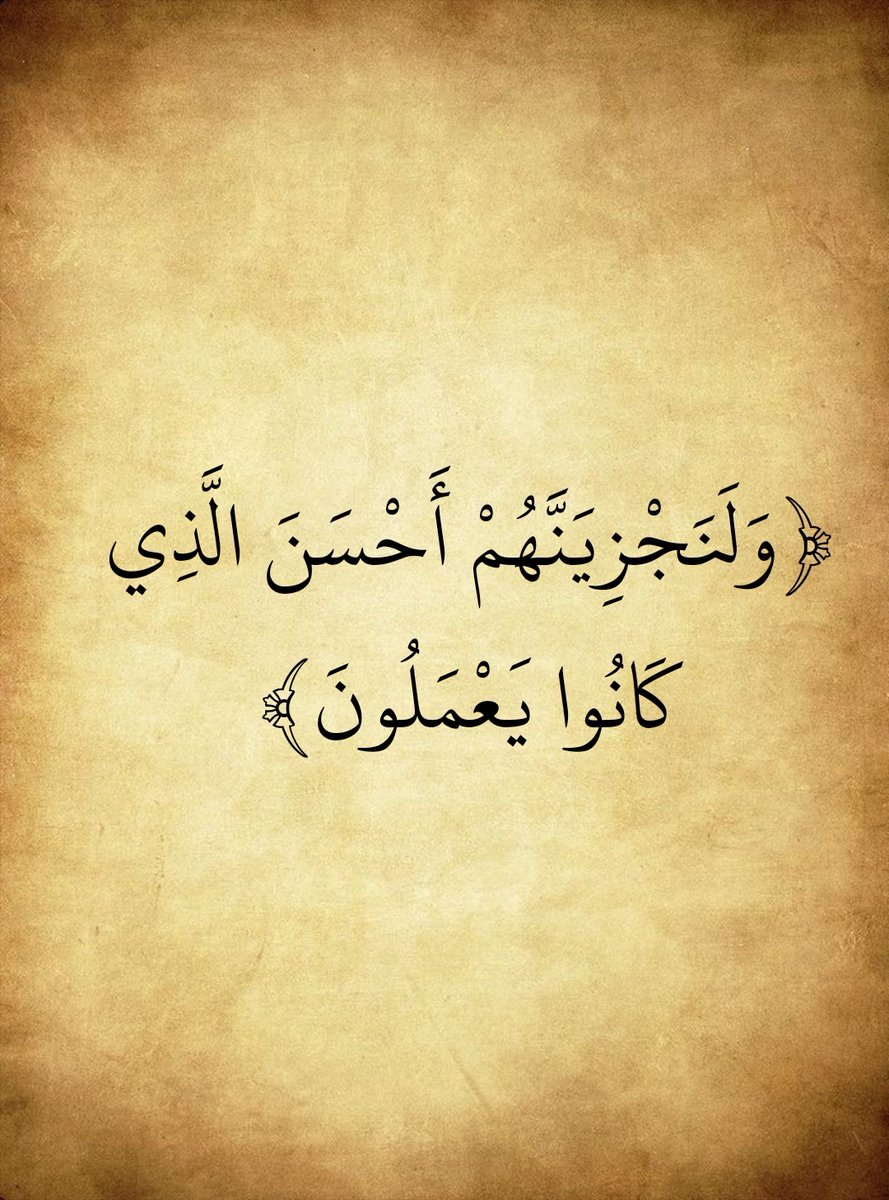 ﴿وَلَنَجْزِيَنَّهُمْ أَحْسَنَ الَّذِي
كَانُوا يَعْمَلُونَ﴾